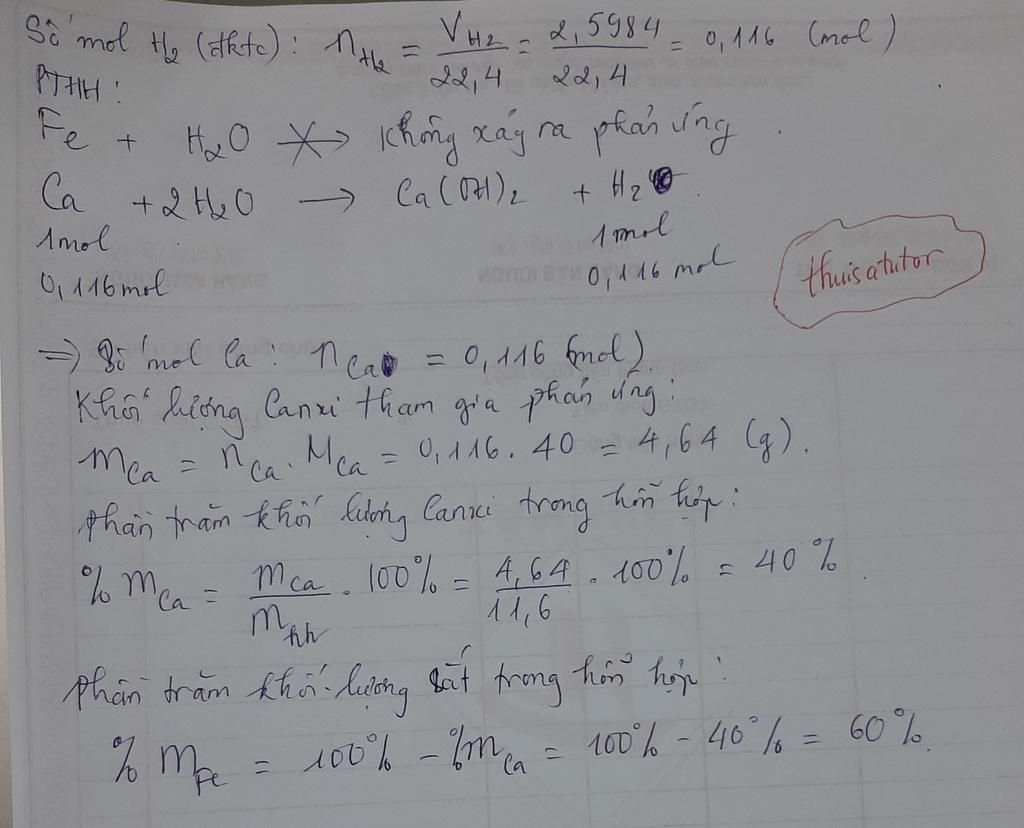 Số mol H₂ (đktc): n_H₂ = V_H₂/22,4 = 2,5984/22,4 = 0,116 (mol)
PTHH:
Fe + H₂O ⨯→ Không xảy ra phản ứng.
Ca + 2H₂O → Ca(OH)₂ + H₂.
1mol 1mol
0,116mol 0,116 mol
thuisatutor
=> Số mol Ca: n_Ca = 0,116 (mol)
Khối lượng Canxi tham gia phản ứng:
m_Ca = n_Ca . M_Ca = 0,116 . 40 = 4,64 (g).
phần trăm khối lượng Canxi trong hỗn hợp:
% m_Ca = m_Ca/m_hh . 100% = 4,64/11,6 . 100% = 40%.
phần trăm khối lượng sắt trong hỗn hợp:
% m_Fe = 100% - %m_Ca = 100% - 40% = 60%.